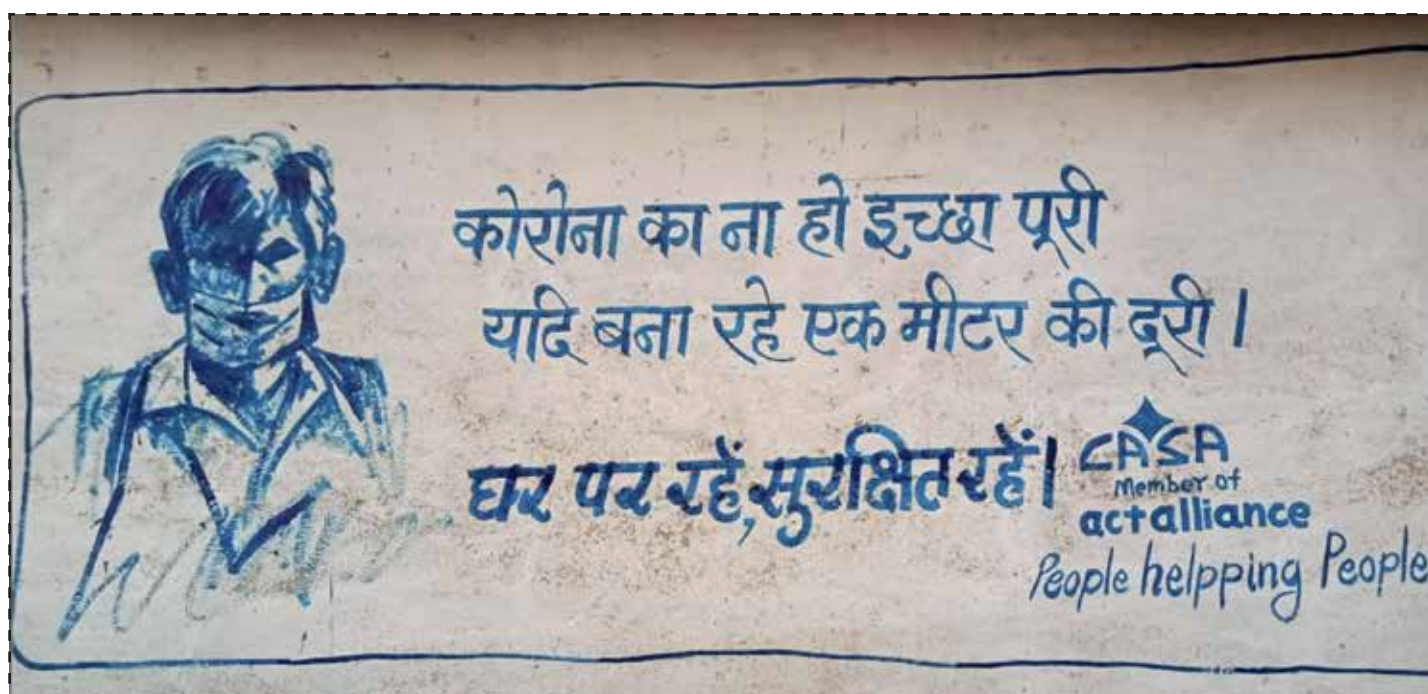 कोरोना का ना हो इच्छा पूरी
यदि बना रहे एक मीटर की दूरी।
घर पर रहें, सुरक्षित रहें।
CASA
Member of
act alliance
People helpping People